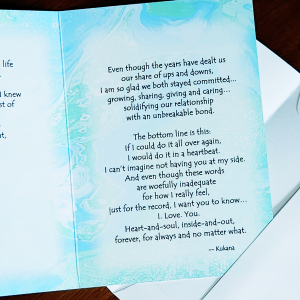 life
I knew
st of
t.
Even though the years have dealt us
our share of ups and downs,
I am so glad we both stayed committed...
growing, sharing, giving and caring...
solidifying our relationship
with an unbreakable bond.
The bottom line is this:
If I could do it all over again,
I would do it in a heartbeat.
I can't imagine not having you at my side.
And even though these words
are woefully inadequate
for how I really feel,
just for the record, I want you to know...
I. Love. You.
Heart-and-soul, inside-and-out,
forever, for always and no matter what.
-- Kukana